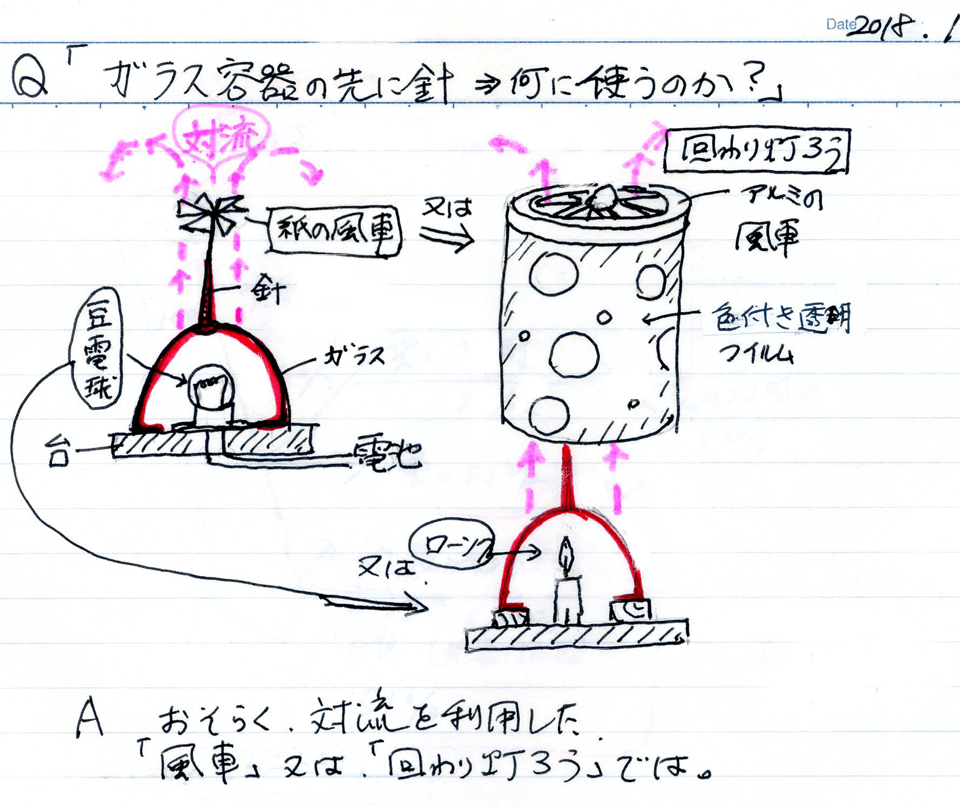 Date 2018.1
Q「ガラス容器の先に針⇒何に使うのか？」
対流
回わり灯ろう
紙の風車
又は
アルミの
風車
針
豆電球
ガラス
色付き透明
フイルム
台
電池
ローソク
又は.
A おそらく、対流を利用した
「風車」又は、「回わり灯ろう」では。